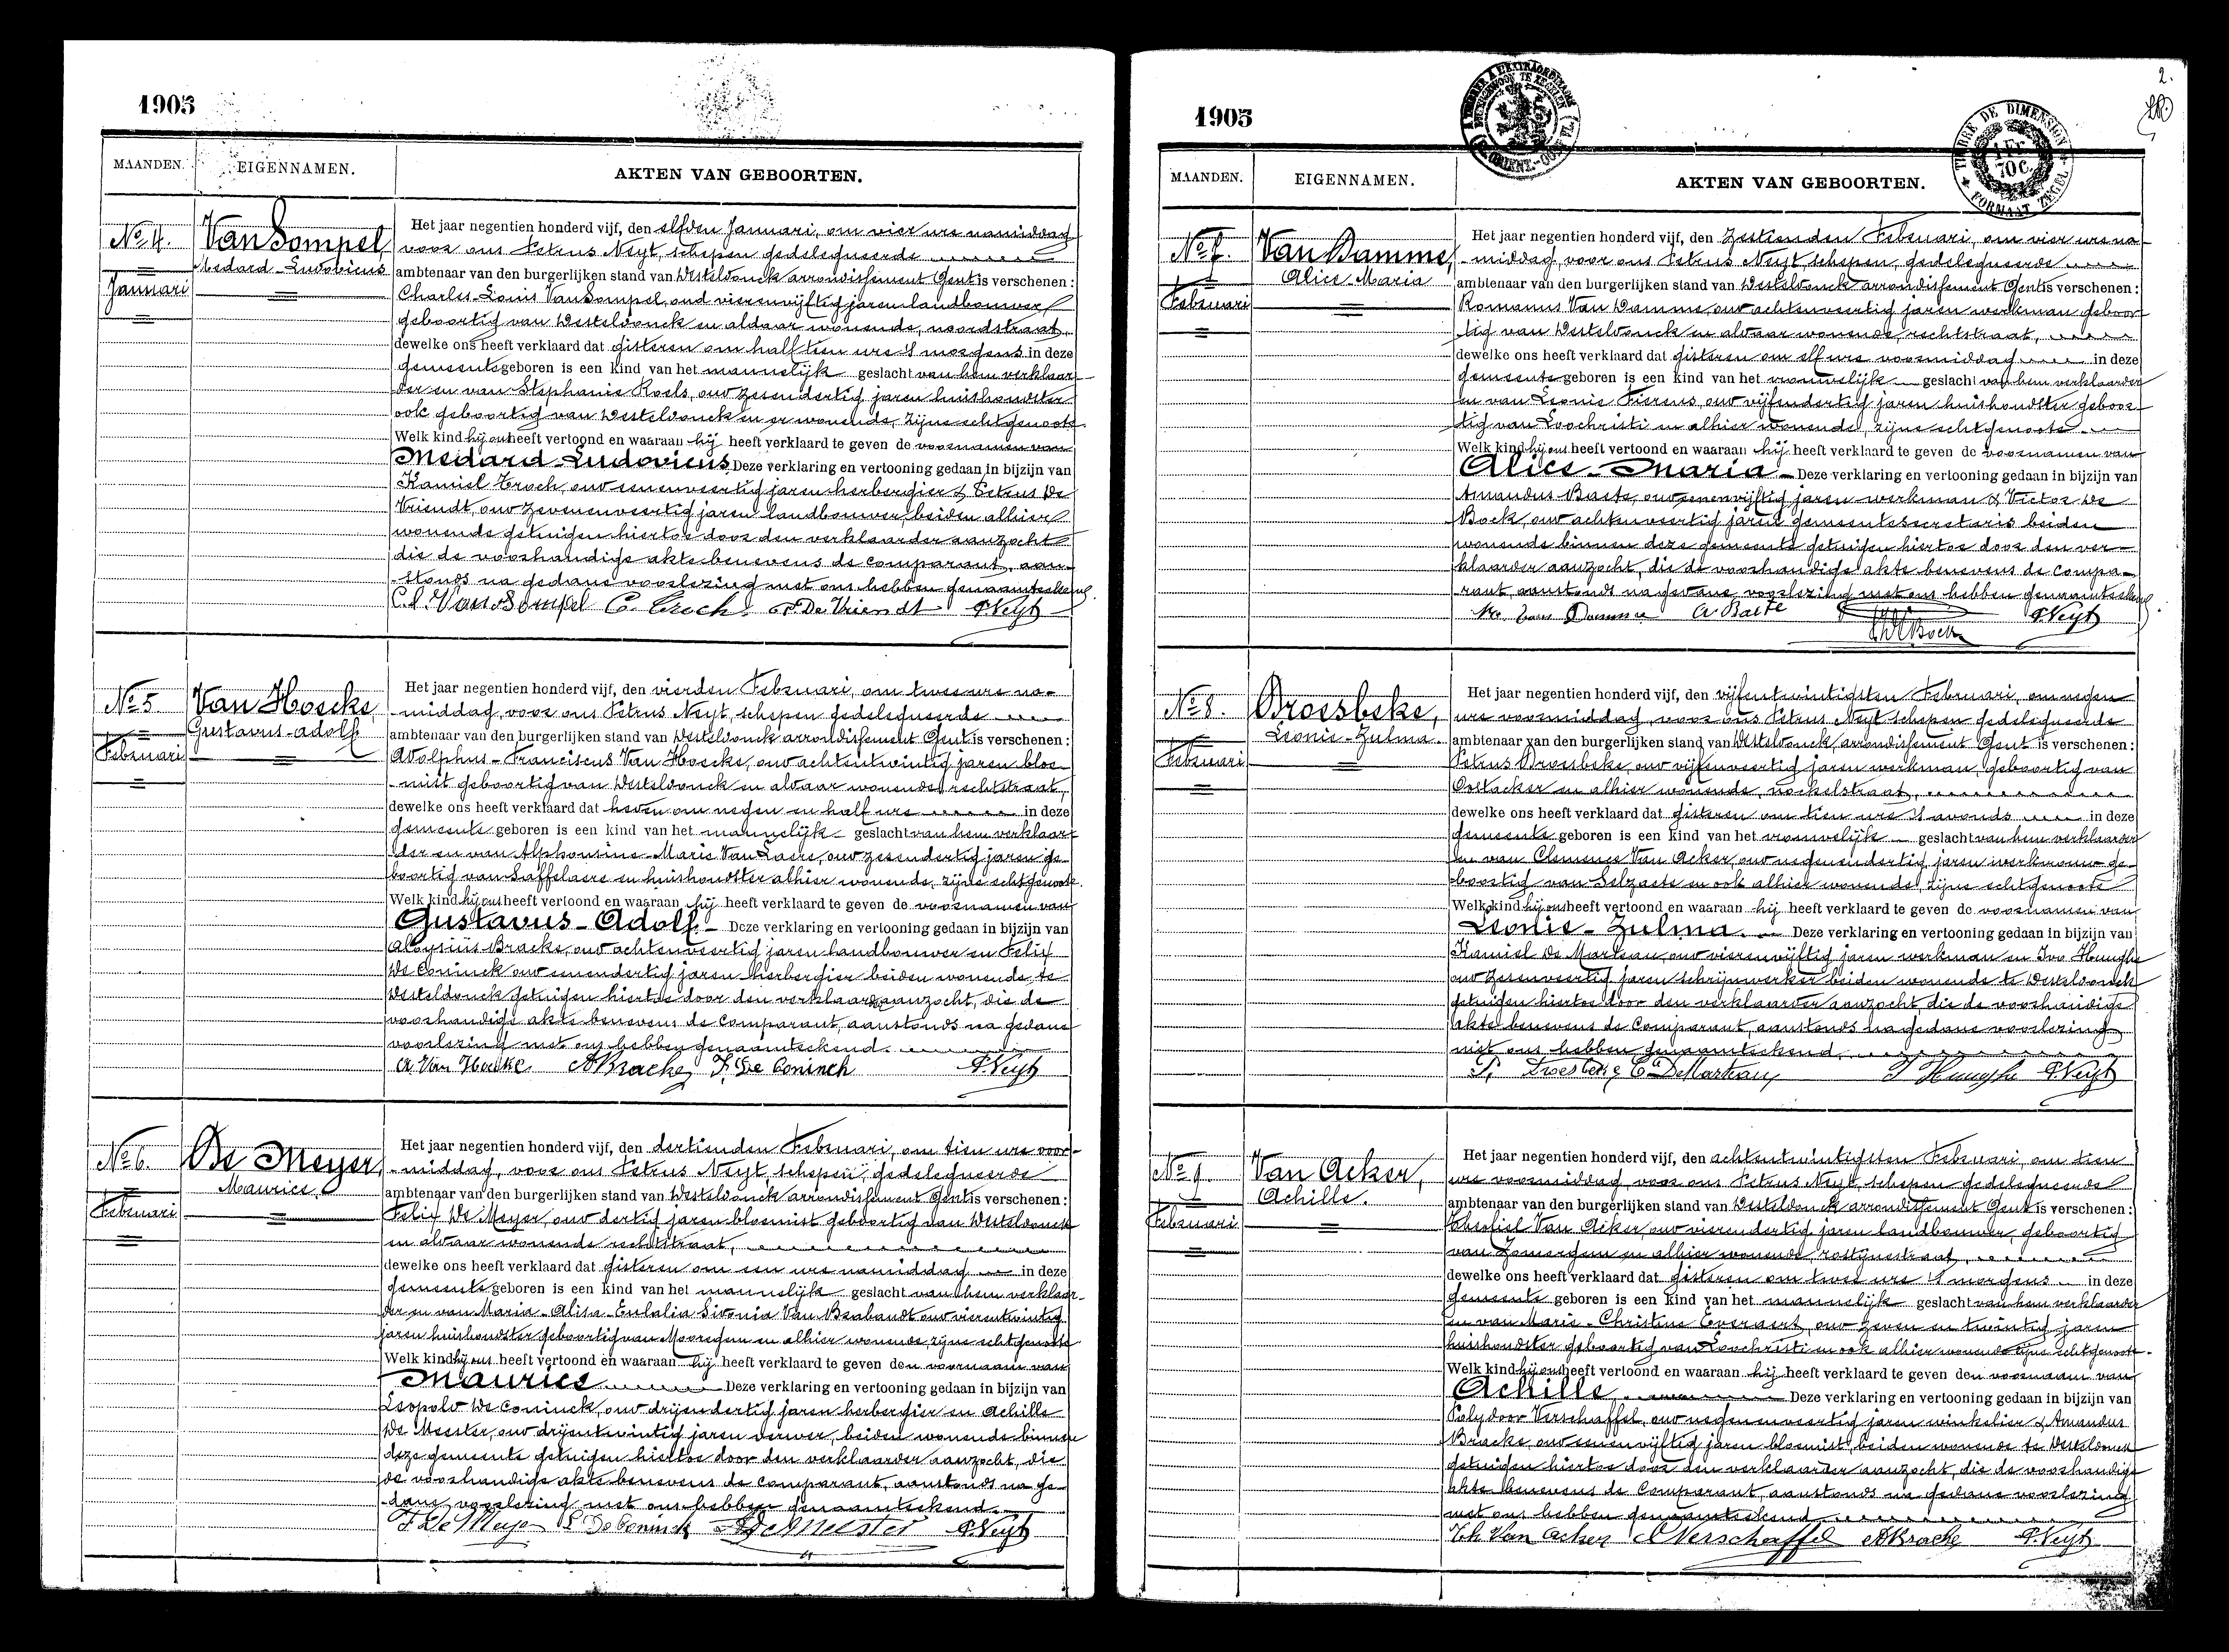 1905
MAANDEN.
EIGENNAMEN.
AKTEN VAN GEBOORTEN.
No 4.
Januari
Van Sompel,
Medard-Ludovicus
Het jaar negentien honderd vijf, den elfden Januari, om vier ure namiddag
voor ons Petrus Neyt, schepen gedelegueerde
ambtenaar van den burgerlijken stand van Desteldonck arrondissement Gent is verschenen:
Charles-Louis Van Sompel, oud vierenvijftig jaren landbouwer
geboortig van Desteldonck en aldaar wonende, noordstraat,
dewelke ons heeft verklaard dat gisteren om half tien ure 's morgens in deze
gemeente geboren is een kind van het mannelijk geslacht van hem verklaar-
der en van Stephanie Roels, oud zesendertig jaren huishoudster
ook geboortig van Desteldonck en er wonende, zijne echtgenoote.
Welk kind hij ons heeft vertoond en waaraan hij heeft verklaard te geven de voornamen van
Medard-Ludovicus Deze verklaring en vertooning gedaan in bijzijn van
Kamiel Troch, oud eenenveertig jaren herbergier & Petrus De
Vriendt, oud zevenenveertig jaren landbouwer, beiden alhier
wonende getuigen hiertoe door den verklaarder aanzocht
die de voorhandige akte benevens de comparant, aan-
-stonds na gedane voorlezing met ons hebben genaamteekend.
C. L. Van Sompel C. Troch P. De Vriendt P. Neyt
No 5
Februari
Van Hoecke,
Gustavus-adolf
Het jaar negentien honderd vijf, den vierden Februari, om twee ure na-
-middag, voor ons Petrus Neyt, schepen gedelegueerde
ambtenaar van den burgerlijken stand van Desteldonck arrondissement Gent is verschenen:
Adolphus-Franciscus Van Hoecke, oud achtentwintig jaren bloe-
-mist geboortig van Desteldonck en aldaar wonende, rechtstraat,
dewelke ons heeft verklaard dat heden om negen en half ure in deze
gemeente geboren is een kind van het mannelijk geslacht van hem verklaar-
der en van Alphonsine-Marie Van Laere, oud zesendertig jaren ge-
boortig van Saffelaere en huishoudster alhier wonende, zijne echtgenoote.
Welk kind hij ons heeft vertoond en waaraan hij heeft verklaard te geven de voornamen van
Gustavus-Adolf Deze verklaring en vertooning gedaan in bijzijn van
Aloysius Braeke, oud achtenveertig jaren landbouwer en Felix
De Coninck oud eenendertig jaren herbergier beiden wonende te
Desteldonck getuigen hiertoe door den verklaarder aanzocht, die de
voorhandige akte benevens de comparant, aanstonds na gedane
voorlezing met ons hebben genaamteekend.
A Van Hoecke ABraeke F. De Coninck P. Neyt
No 6.
Februari
De Meyer,
Maurice.
Het jaar negentien honderd vijf, den dertienden Februari, om tien ure voor-
-middag, voor ons Petrus Neyt, schepen, gedelegueerde
ambtenaar van den burgerlijken stand van Desteldonck arrondissement Gent is verschenen:
Felix De Meyer, oud dertig jaren bloemist geboortig van Desteldonck
en aldaar wonende rechtstraat,
dewelke ons heeft verklaard dat gisteren om een ure namiddag in deze
gemeente geboren is een kind van het mannelijk geslacht van hem verklaar-
der en van Maria-Alisa-Eulalia Sidonia Van Brabandt oud vierentwintig
jaren huishoudster geboortig van Mooregem en alhier wonende, zijne echtgenoote
Welk kind hij ons heeft vertoond en waaraan hij heeft verklaard te geven den voornaam van
Maurice Deze verklaring en vertooning gedaan in bijzijn van
Leopold De Coninck, oud drijendertig jaren herbergier en Achille
De Meester, oud drijentwintig jaren verver, beiden wonende binnen
deze gemeente getuigen hiertoe door den verklaarder aanzocht, die
de voorhandige akte benevens de comparant, aanstonds na ge-
-dane voorlezing met ons hebben genaamteekend.
F De Meyer L DeConinck ADeMeester P. Neyt
1905
2.
TIMBRE DE DIMENSION
FORMAAT ZEGEL
MAANDEN.
EIGENNAMEN.
AKTEN VAN GEBOORTEN.
No 7.
Februari
Van Damme,
Alice-Maria
Het jaar negentien honderd vijf, den Zestienden Februari, om vier ure na-
-middag, voor ons Petrus Neyt, schepen, gedelegueerde
ambtenaar van den burgerlijken stand van Desteldonck arrondissement Gent is verschenen:
Romanus Van Damme, oud achtenveertig jaren werkman geboor-
tig van Desteldonck en aldaar wonende, rechtstraat,
dewelke ons heeft verklaard dat gisteren om elf ure voormiddag in deze
gemeente geboren is een kind van het vrouwelijk geslacht van hem verklaarder
en van Leonie Fierens, oud vijfendertig jaren huishoudster geboor-
tig van Loochristi en alhier wonende, zijne echtgenoote
Welk kind hij ons heeft vertoond en waaraan hij heeft verklaard te geven de voornamen van
Alice-Maria Deze verklaring en vertooning gedaan in bijzijn van
Amandus Baete, oud eenenvijftig jaren werkman & Victor De
Bock, oud achtenveertig jaren gemeentesecretaris beiden
wonende binnen deze gemeente getuigen hiertoe door den ver-
klaarder aanzocht, die de voorhandige akte benevens de compa-
rant aanstonds na gedane voorlezing met ons hebben genaamteekend.
Van Damme A Baete VDeBock P. Neyt
No 8.
Februari
Droesbeke,
Leonie-Zulma.
Het jaar negentien honderd vijf, den vijfentwintigsten Februari, om negen
ure voormiddag, voor ons Petrus Neyt schepen gedelegueerde
ambtenaar van den burgerlijken stand van Desteldonck arrondissement Gent is verschenen:
Petrus Droesbeke, oud vijfenveertig jaren werkman, geboortig van
Oostacker en alhier wonende, nockelstraat,
dewelke ons heeft verklaard dat gisteren om tien ure 's avonds in deze
gemeente geboren is een kind van het vrouwelijk geslacht van hem verklaarder
en van Clemence Van Acker, oud negenendertig jaren werkvrouw ge-
boortig van Selzaete en ook alhier wonende, zijne echtgenoote
Welk kind hij ons heeft vertoond en waaraan hij heeft verklaard te geven de voornamen van
Leonie-Zulma. Deze verklaring en vertooning gedaan in bijzijn van
Kamiel De Marteau, oud vierenvijftig jaren werkman en Ivo Huughe
oud zesenveertig jaren schrijnwerker beiden wonende te Desteldonck
getuigen hiertoe door den verklaarder aanzocht, die de voorhandige
akte benevens de Comparant, aanstonds na gedane voorlezing
met ons hebben genaamteekend.
P. Droesbeke C DeMarteau I Huughe P. Neyt
No 9.
Februari.
Van Acker,
Achille.
Het jaar negentien honderd vijf, den achtentwintigsten Februari, om tien
ure voormiddag, voor ons Petrus Neyt, schepen gedelegueerde
ambtenaar van den burgerlijken stand van Desteldonck arrondissement Gent is verschenen:
Van Acker, oud vierendertig jaren landbouwer, geboortig
van Zomergem en alhier wonende, rostijnestraat,
dewelke ons heeft verklaard dat gisteren om twee ure 's morgens in deze
gemeente geboren is een kind van het mannelijk geslacht van hem verklaarder
en van Marie-Christine Everaert, oud zeven en twintig jaren
huishoudster geboortig van Loochristi en ook alhier wonende zijne echtgenoote.
Welk kind hij ons heeft vertoond en waaraan hij heeft verklaard te geven den voornaam van
Achille Deze verklaring en vertooning gedaan in bijzijn van
Polydoor Verschaffel, oud negenenveertig jaren winkelier & Amandus
Braeke, oud eenenvijftig jaren bloemist, beiden wonende te Desteldonck
getuigen hiertoe door den verklaarder aanzocht, die de voorhandige
akte benevens de Comparant, aanstonds na gedane voorlezing
met ons hebben genaamteekend
Van Acker Verschaffel ABraeke P. Neyt